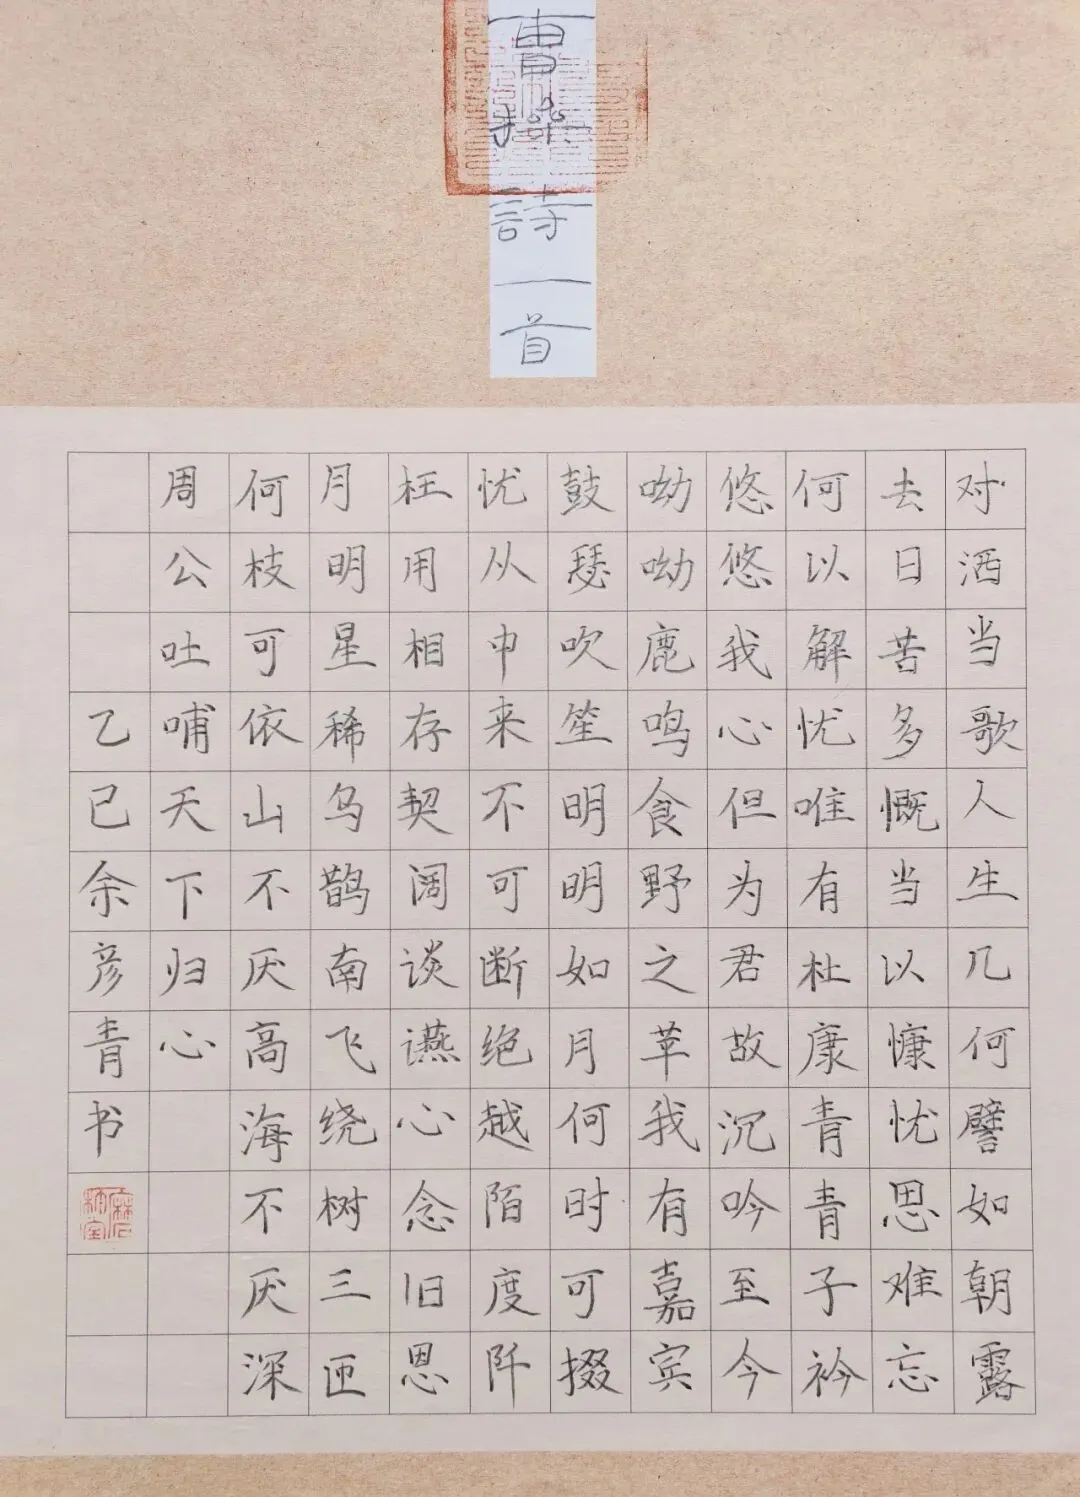 曹操詩一首
对洒当歌人生几何譬如朝露
去日苦多慨当以慷忧思难忘
何以解忧唯有杜康青青子衿
悠悠我心但为君故沉吟至今
呦呦鹿鸣食野之苹我有嘉宾
鼓瑟吹笙明明如月何时可掇
忧从中来不可断绝越陌度阡
枉用相存契阔谈䜩心念旧恩
月明星稀乌鹊南飞绕树三匝
何枝可依山不厌高海不厌深
周公吐哺天下归心
乙巳余彦青书